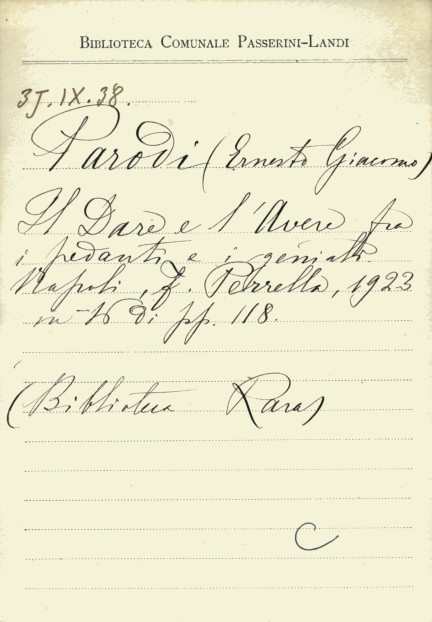 BIBLIOTECA COMUNALE PASSERINI-LANDI
3J.IX.38.
Parodi (Ernesto Giacomo)
Il Dare e l'Avere fra
i pedanti e i geniali
Napoli, F. Perrella, 1923
in-16 di pp. 118.
(Biblioteca Rara)
C